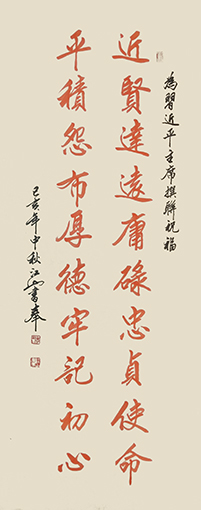 為習近平主席撰聯祝福
近賢達遠庸碌忠貞使命
平積怨布厚德牢記初心
己亥年中秋江山書奉